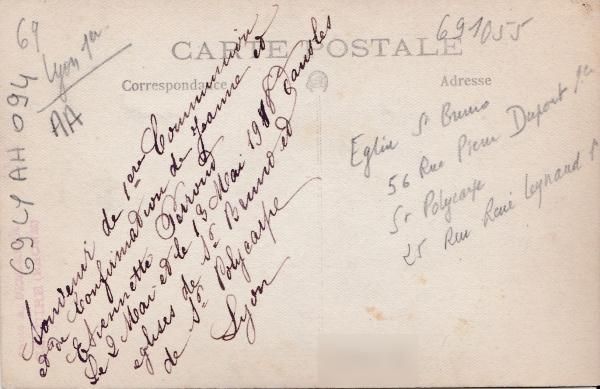 CARTE POSTALE
Correspondance
Adresse
69
Lyon 1er
AA
69 LY AH 094
691055
Souvenir de 1ere Communion
et de Confirmation de Jeanne et
Etiennette Perroud
Le 2 Mai et le 13 Mai 1918 Paroles
eglises de St Bruno et
de St Polycarpe
Lyon
Eglise St Bruno
56 Rue Pierre Dupont 1er
St Polycarpe
25 Rue René Leynaud 1